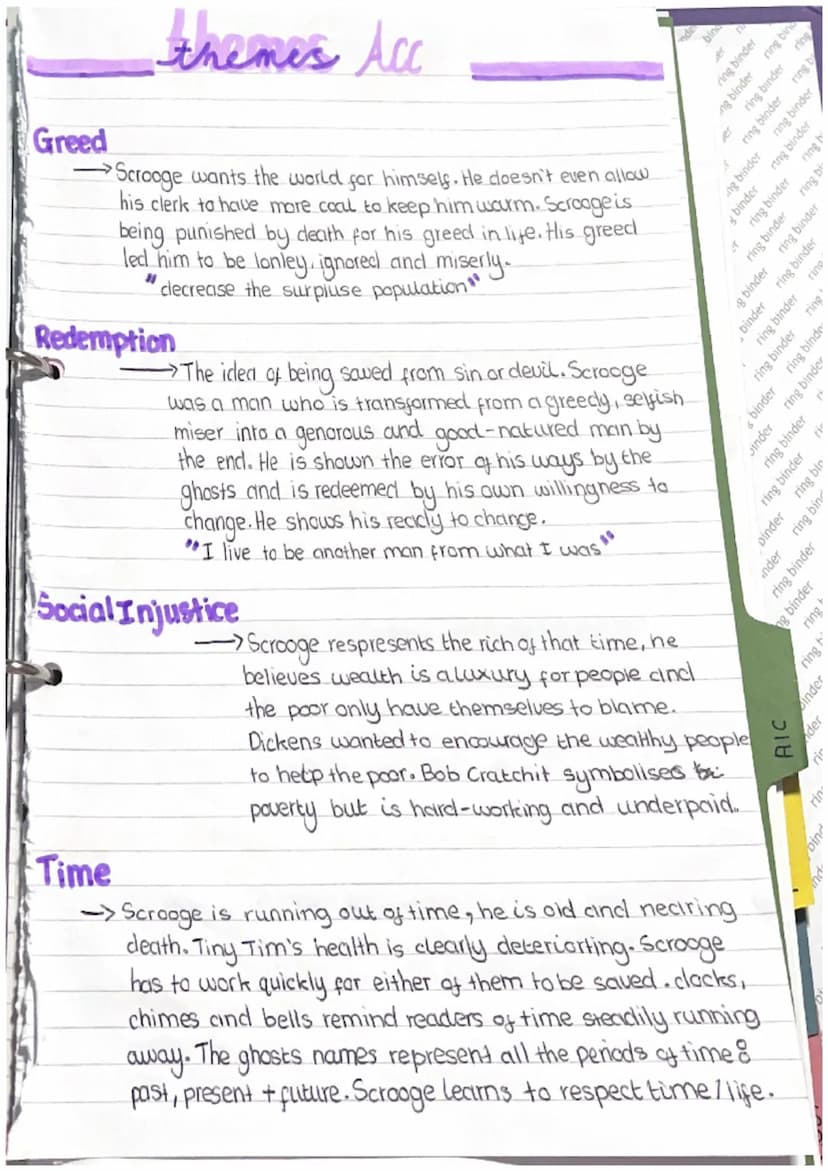 themes ACC
Greed
→ Scrooge wants the world for himself. He doesn't even allow
his clerk to have more coal to keep him warm. Scrooge is
being punished by death for his greed in life. His greed
led him to be lonley, ignored and miserly.
"decrease the surpluse population"
Redemption
→ The idea of being saved from sin or devil. Scrooge
was a man who is transformed from a greedy, selfish
miser into a genorous and good-natured man by
the end. He is shown the error of his ways by the
ghosts and is redeemed by his own willingness to
change. He shows his ready to change.
"I live to be another man from what I was"
Social Injustice
→ Scrooge respresents the rich of that time, he
believes wealth is a luxury for people and
the poor only have themselves to blame.
Dickens wanted to encourage the wealthy people
to help the poor. Bob Cratchit symbolises
poverty but is hard-working and underpaid.
Time
→ Scrooge is running out of time, he is old and nearing
death. Tiny Tim's health is clearly deteriorting. Scrooge
has to work quickly for either of them to be saved. clocks,
chimes and bells remind readers of time steadily running
away. The ghosts names represent all the periods of time:
past, present + future. Scrooge learns to respect time/life.
AIC
ring binder